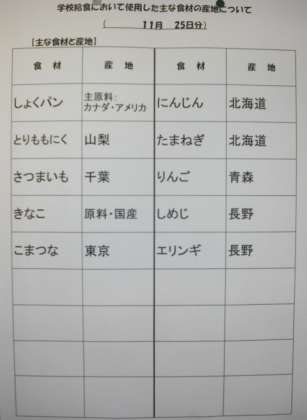 学校給食において使用した主な食材の産地について
(　11月　25日分)
[主な食材と産地]
食 材　産 地　食 材　産 地
しょくパン　主原料:カナダ・アメリカ　にんじん　北海道
とりももにく　山梨　たまねぎ　北海道
さつまいも　千葉　りんご　青森
きなこ　原料・国産　しめじ　長野
こまつな　東京　エリンギ　長野